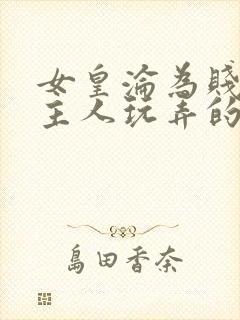 女皇淪為賤
主人玩弄的
島田香奈